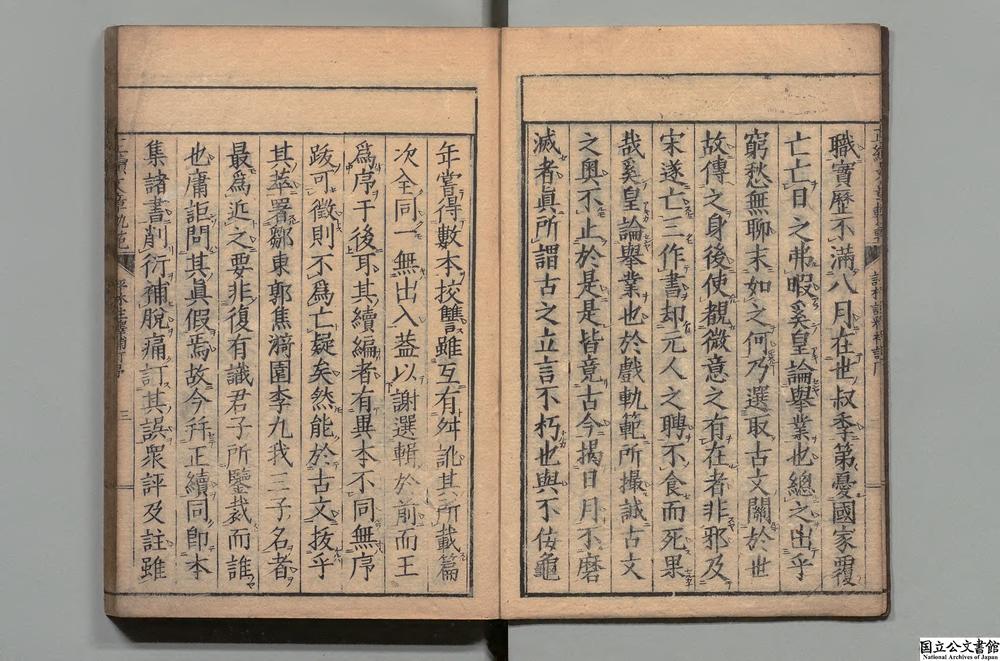 職實歷不滿八月在世叔季第憂國家覆
亡亡日之弗暇奚皇論舉業也總之出乎
窮愁無聊末如之何乃選取古文關於世
故傳之身後使觀微意之有在者非邪及
宋遂亡三作書却元人之聘不食而死果
哉奚皇論舉業也於戲軌範所撮誠古文
之奧不止於是是皆竟古今揭日月不磨
滅者眞所謂古之立言不朽也與不佞龜
年嘗得數本挍讐雖互有舛訛其所載篇
次全同一無出入葢以謝選輯於前而王
爲序于後耳其續編者有異本不同無序
跋可徵則不爲亡疑矣然能於古文抜乎
其萃署鄒東郭焦漪園李九我三子名者
最爲近之要非復有識君子所鑒裁而誰
也庸詎問其眞假焉故今幷正續同卽本
集諸書削衍補脫痛訂其誤衆評及註雖
三
国立公文書館
National Archives of Japan